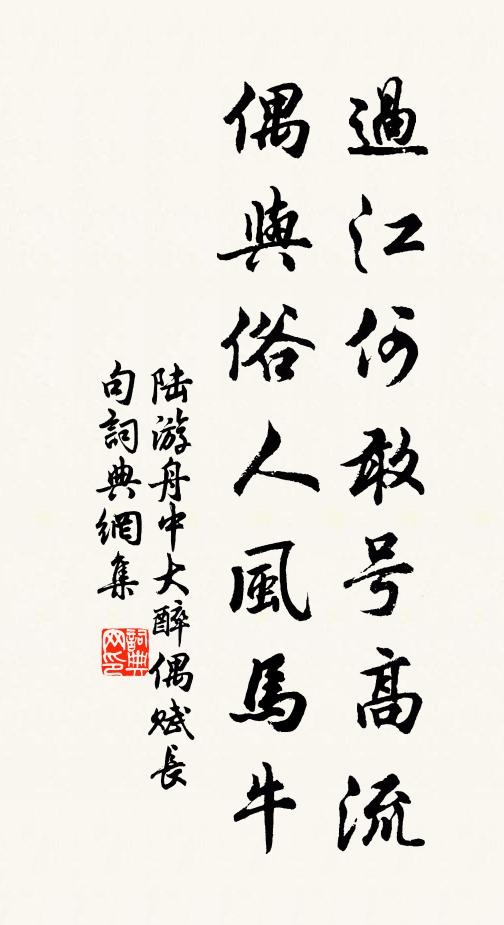 過江何敢号高流
偶與俗人風馬牛
陆游舟中大醉偶赋長
句詞典網集
詞典网印